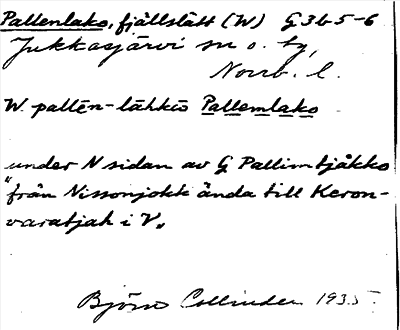 Pallenlako, fjällslätt (W) G3b5-6
Jukkasjärvi sn o. tg,
Norrb. l.
W. pallēn-lähkō Pallemlako
under N sidan av G Pallimtjåkko
"från Nissonjokk ända till Keron-
varatjah i V.
Björn Collinder 1935